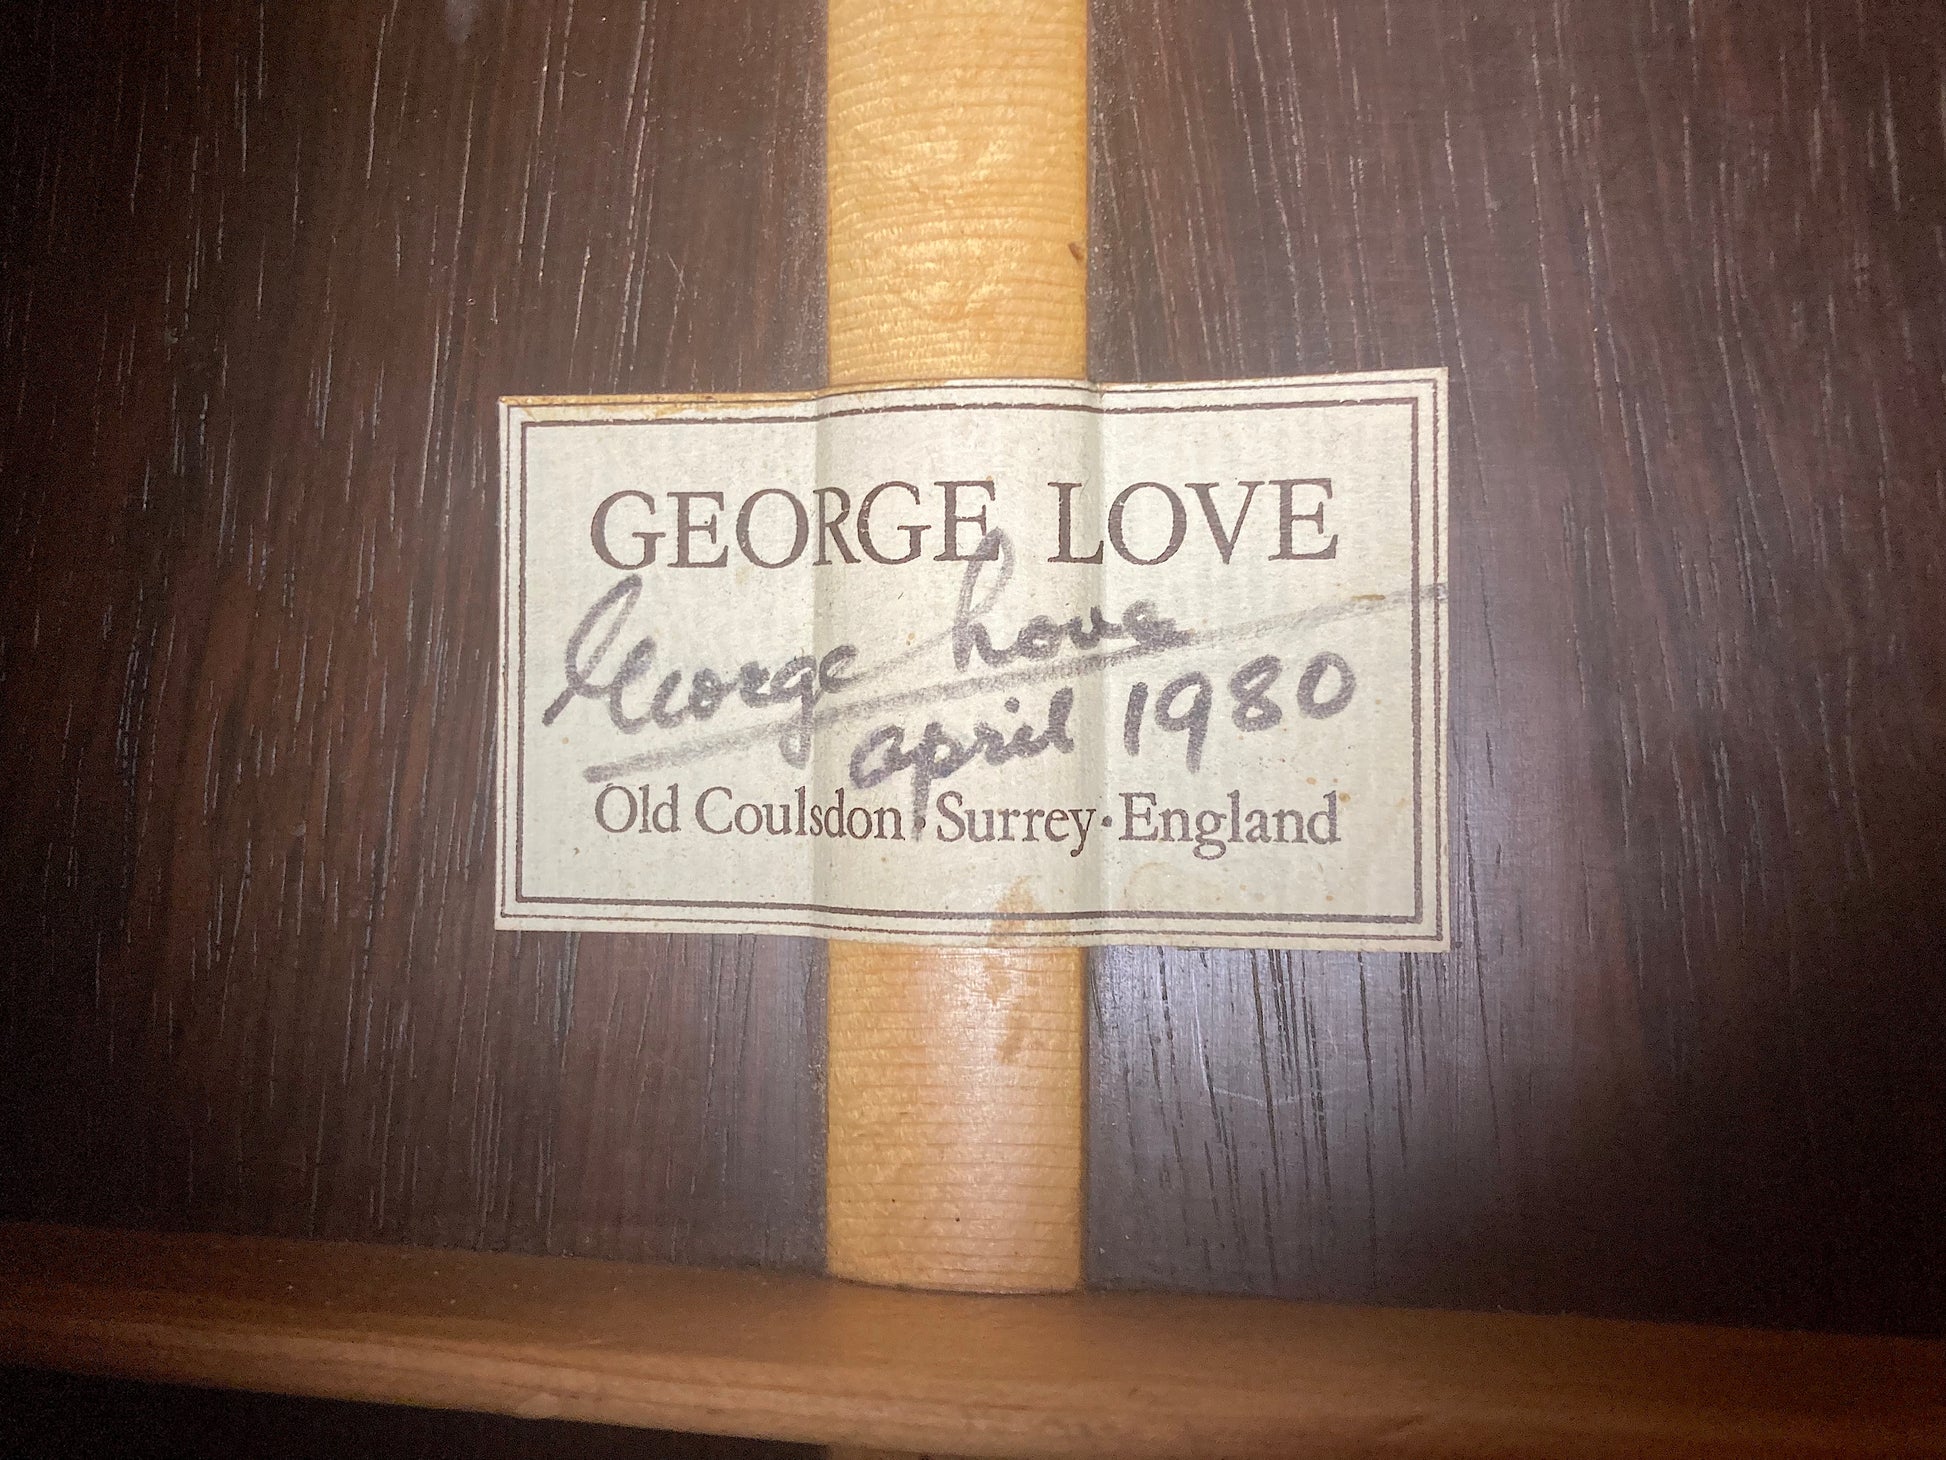 GEORGE LOVE
George Love
april 1980
Old Coulsdon · Surrey · England